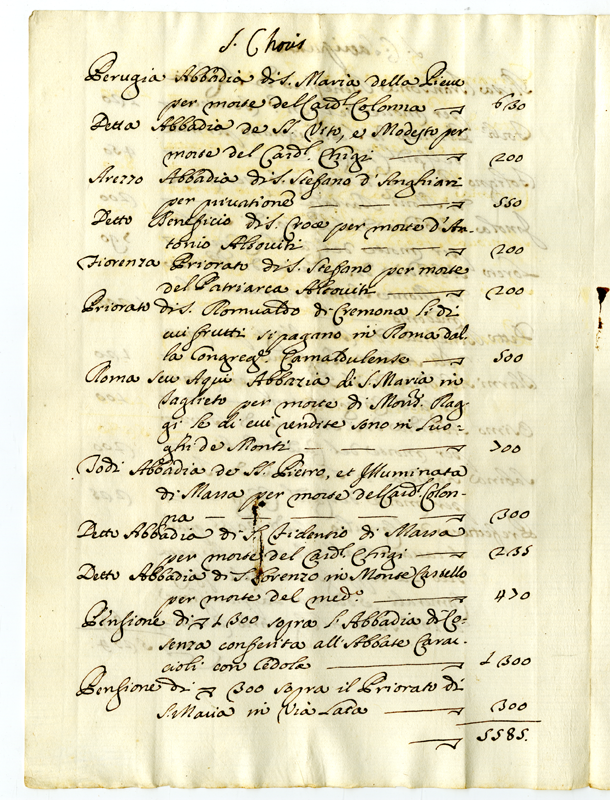 S. Chovis
Perugia Abbadia di S. Maria della Pieve
per morte del Card.l Colonna — 630
Detta Abbadia de SS. Vito, e Modesto per
morte del Card.l Chigi — 200
Arezzo Abbadia di S. Stefano d'Anghiari
per privatione — 550
Detto Beneficio di S. Croce per morte d'An-
tonio Altoviti — 200
Fiorenza Priorato di S. Stefano per morte
del Patriarca Altoviti — 200
Priorato di S. Romualdo di Cremona li di
cui frutti si pagano in Roma dal-
la Congreg.e Camaldulense — 500
Roma seu Aqui Abbazia di S. Maria in
Saglieto per morte di Mons. Rag-
gi le di cui rendite sono in Luo-
ghi de Monti — 700
Todi Abbadia de SS. Pietro, et Illuminata
di Massa per morte del Card.l Colon-
na — 300
Detto Abbadia di S. Fidentio di Massa
per morte del Card.l Chigi — 235
Detto Abbadia di S. Lorenzo in Monte Castello
per morte del med.o — 470
Pensione di 1300 sopra l'Abbadia di Co-
senza conferita all'Abbate Carac-
cioli con Cedola — 1300
Pensione di 300 sopra il Priorato di
S. Maria in Via Lata — 300
— 5585.